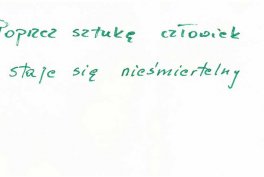 Poprzez sztukę człowiek
staje się nieśmiertelny